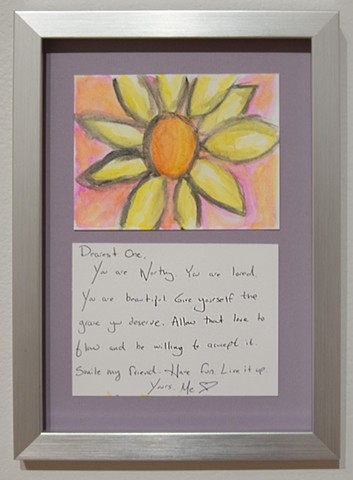 Dearest One,
You are Worthy You are loved.
You are beautiful. Give yourself the
grace you deserve. Allow that love to
flow and be willing to accept it.
Smile my friend. Have fun. Live it up.
Yours, Me ♡